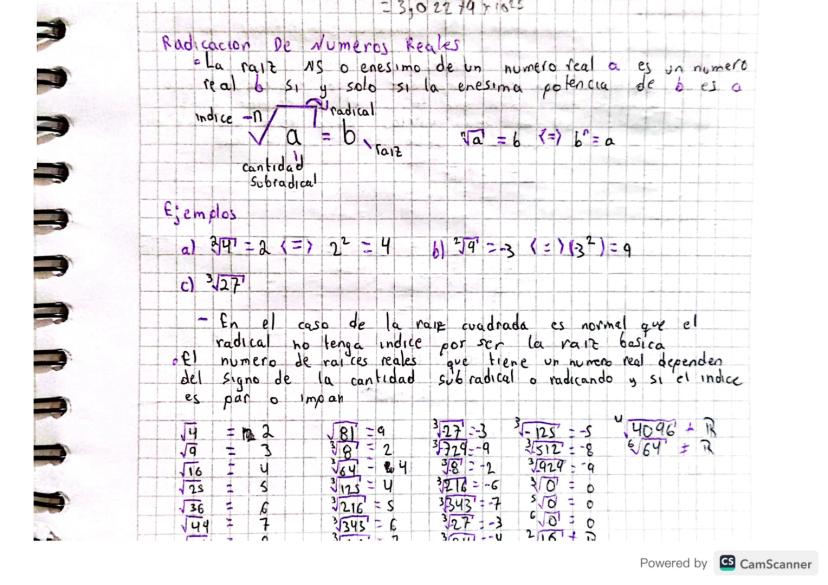 = 3,02279 x 10²⁵
Radicacion De Numeros Reales
La raiz NS o enesimo de un numero real a es un numero
real b si y solo si la enesima potencia de b es a
indice - n radical
√a = b raiz
ⁿ√a = b <=> bⁿ = a
cantidad
subradical
Ejemplos
a) ²√4 = 2 <=> 2² = 4 b) ²√9 = -3 <=> (-3²) = 9
c) ³√27
- En el caso de la raiz cuadrada es normal que el
radical no tenga indice por ser la raiz basica
El numero de raices reales que tiene un numero real dependen
del signo de la cantidad subradical o radicando y si el indice
es par o impar
√4 = 2 √81 = 9 ³√27 = -3 ³√-125 = -5 ⁴√4096 ± R
√9 = 3 ³√8 = 2 ³√729 = -9 ³√512 = -8 ⁶√64 = R
√16 = 4 ³√64 = 4 ³√8 = -2 ³√929 = -9
√25 = 5 ³√125 = 4 ³√216 = -6 ³√0 = 0
√36 = 6 ³√216 = 5 ³√343 = -7 ⁵√0 = 0
√49 = 7 ³√343 = 6 ³√27 = -3 ⁶√0 = 0
Powered by CS CamScanner